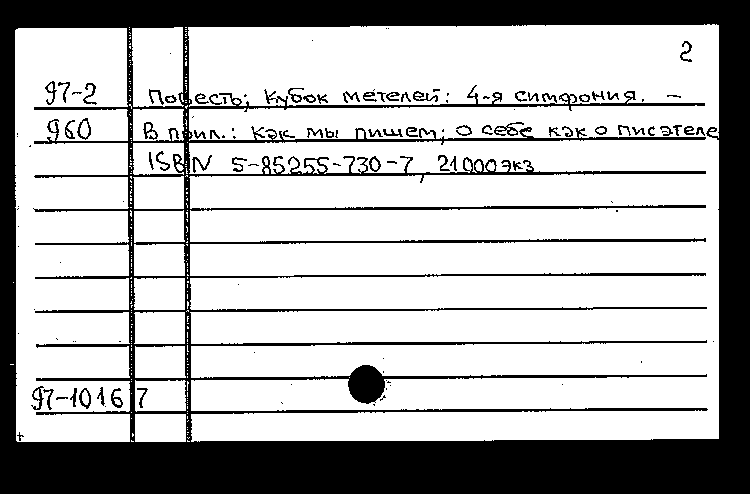 2
97-2 Повесть; Кубок метелей: 4-я симфония. —
960 В прил.: Как мы пишем; О себе как о писателе
ISBN 5-85255-730-7, 21000 экз
97-10167